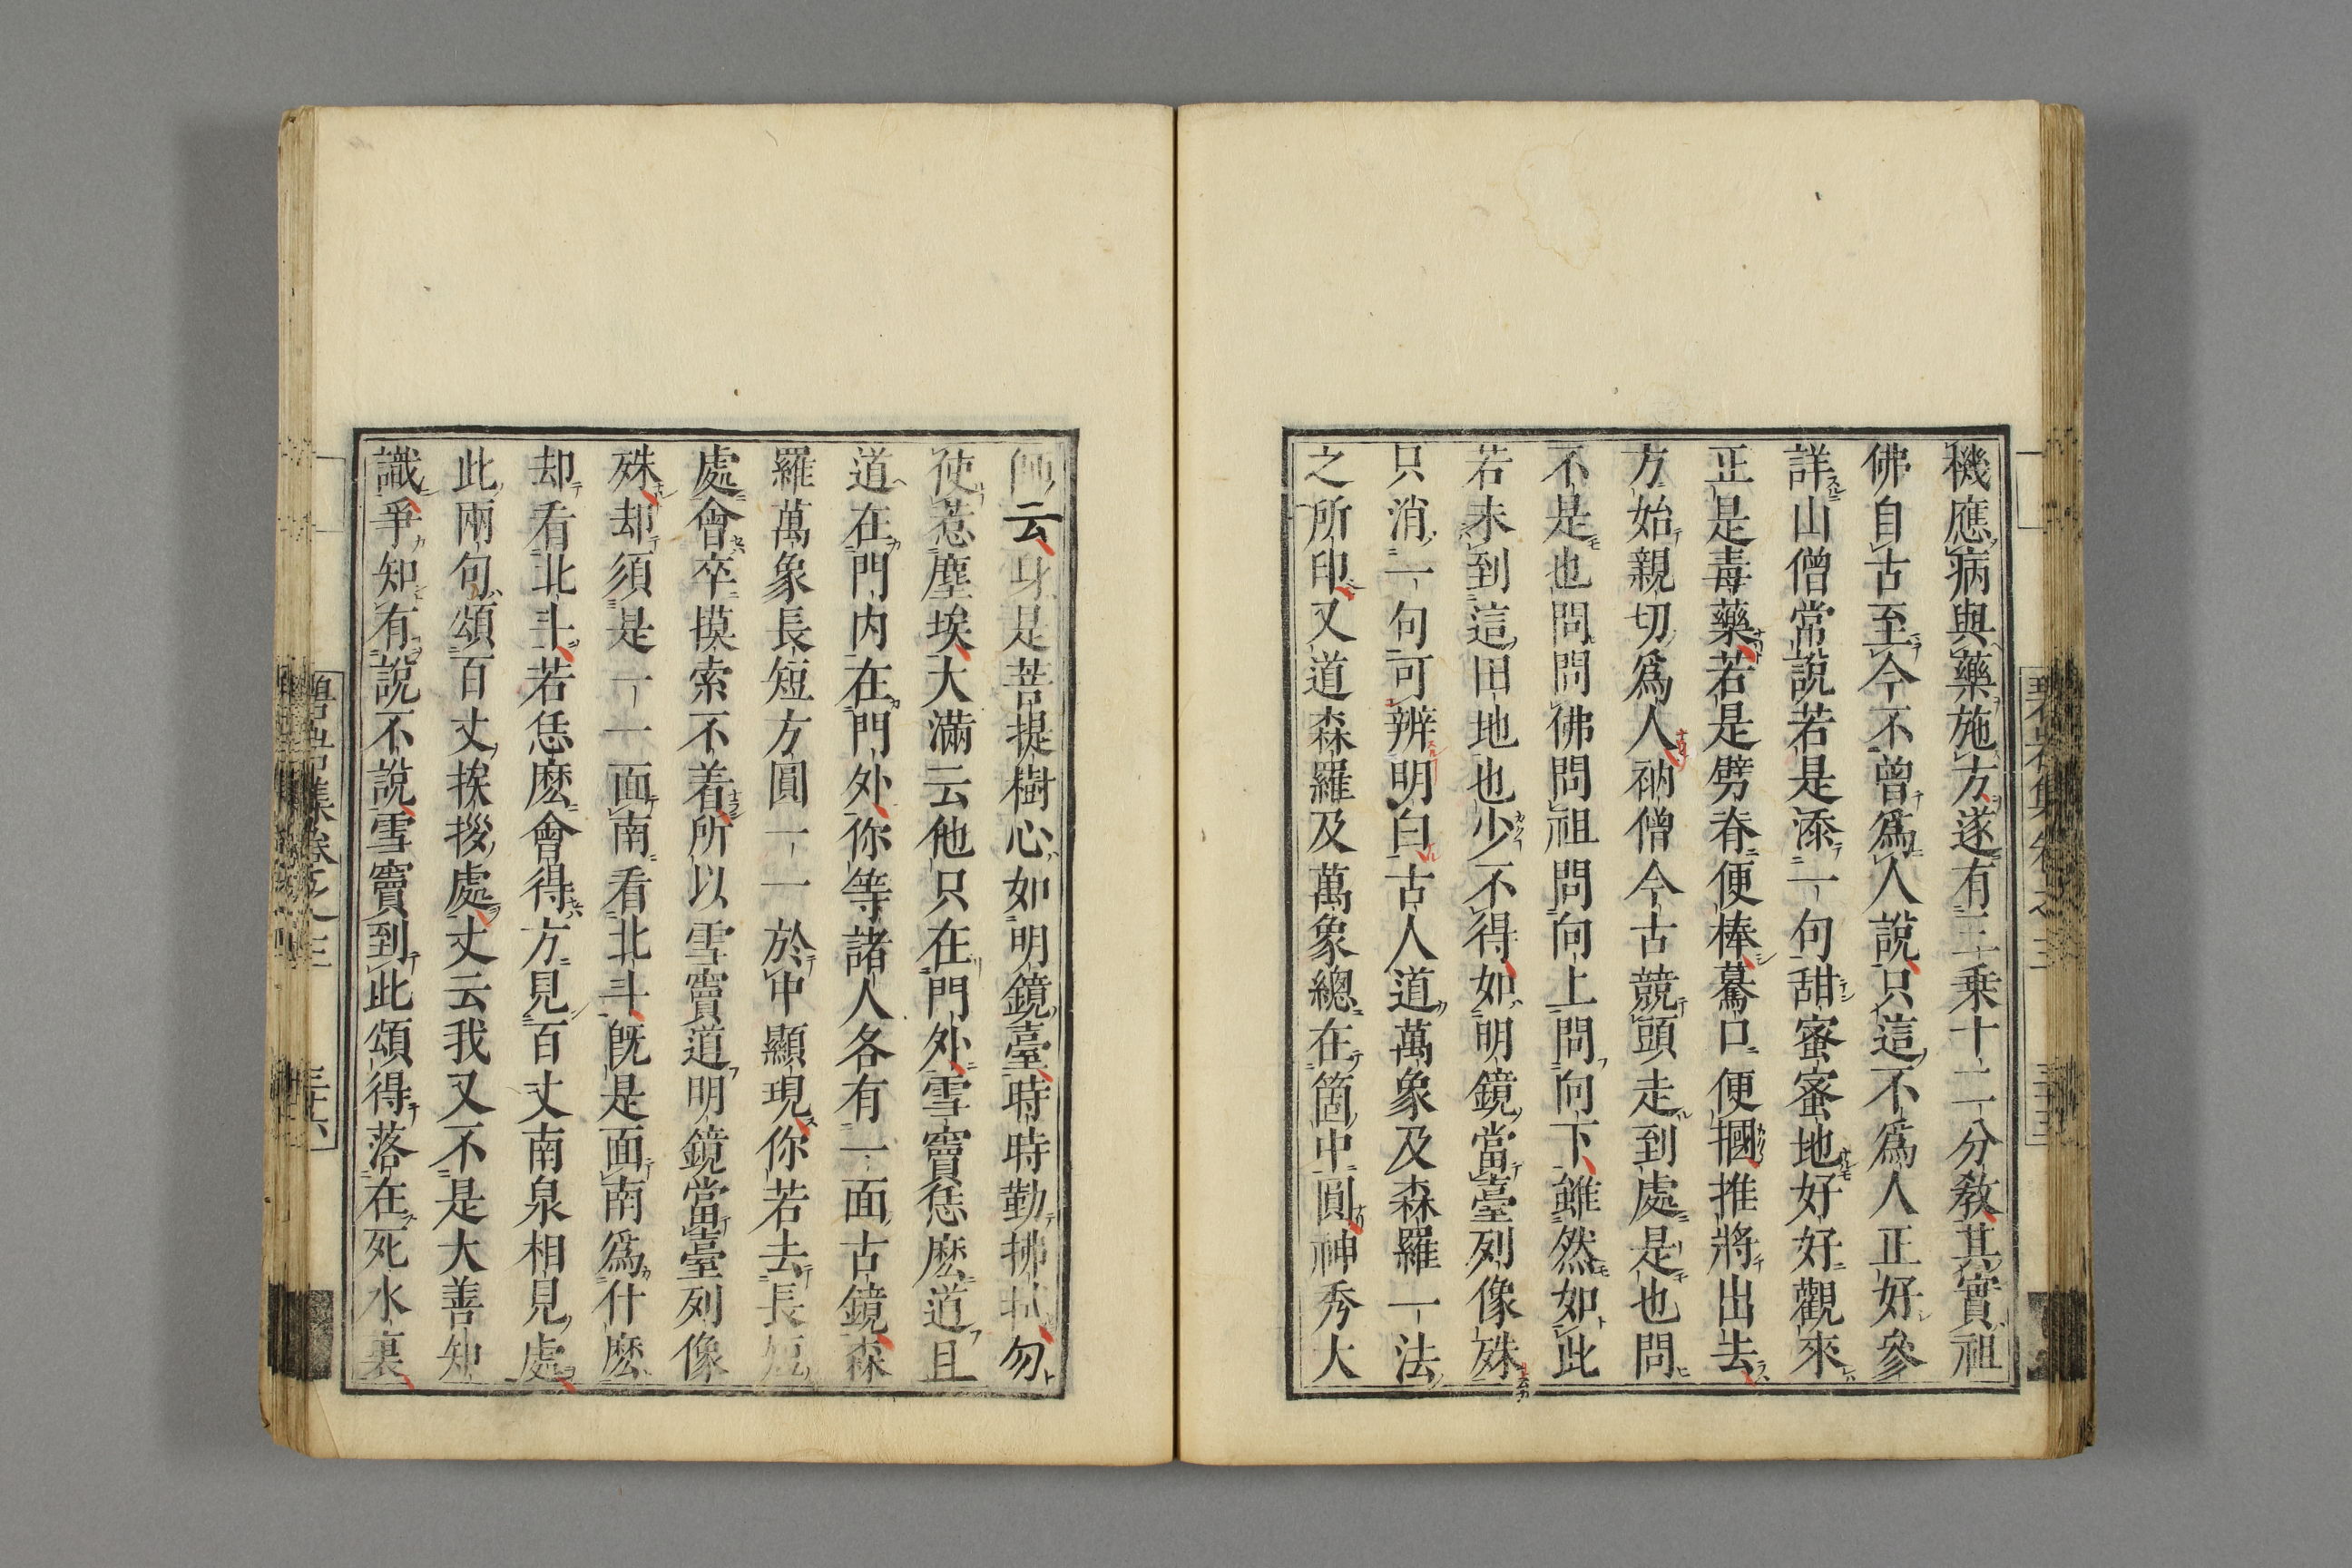 機應病與藥施方遂有三乗十二分教其實祖
佛自古至今不曾爲人說只這不爲人正好參
詳山僧常說若是添一句甜蜜蜜地好好觀來
正是毒藥若是劈脊便棒驀口便摑推將出去
方始親切爲人衲僧今古競頭走到處是也問
不是也問問佛問祖問向上問向下雖然如此
若未到這田地也少不得如明鏡當臺列像殊
只消一句可辨明白古人道萬象及森羅一法
之所印又道森羅及萬象總在箇中圓神秀大
師云身是菩提樹心如明鏡臺時時勤拂拭勿
使惹塵埃大滿云他只在門外雪竇恁麽道且
道在門内在門外你等諸人各有一面古鏡森
羅萬象長短方圓一一於中顯現你若去長短
處會卒摸索不着所以雪竇道明鏡當臺列像
殊却須是一一面南看北斗旣是面南爲什麽
却看北斗若恁麽會得方見百丈南泉相見處
此兩句頌百丈挨拶處丈云我又不是大善知
識爭知有說不說雪竇到此頌得落在死水裏